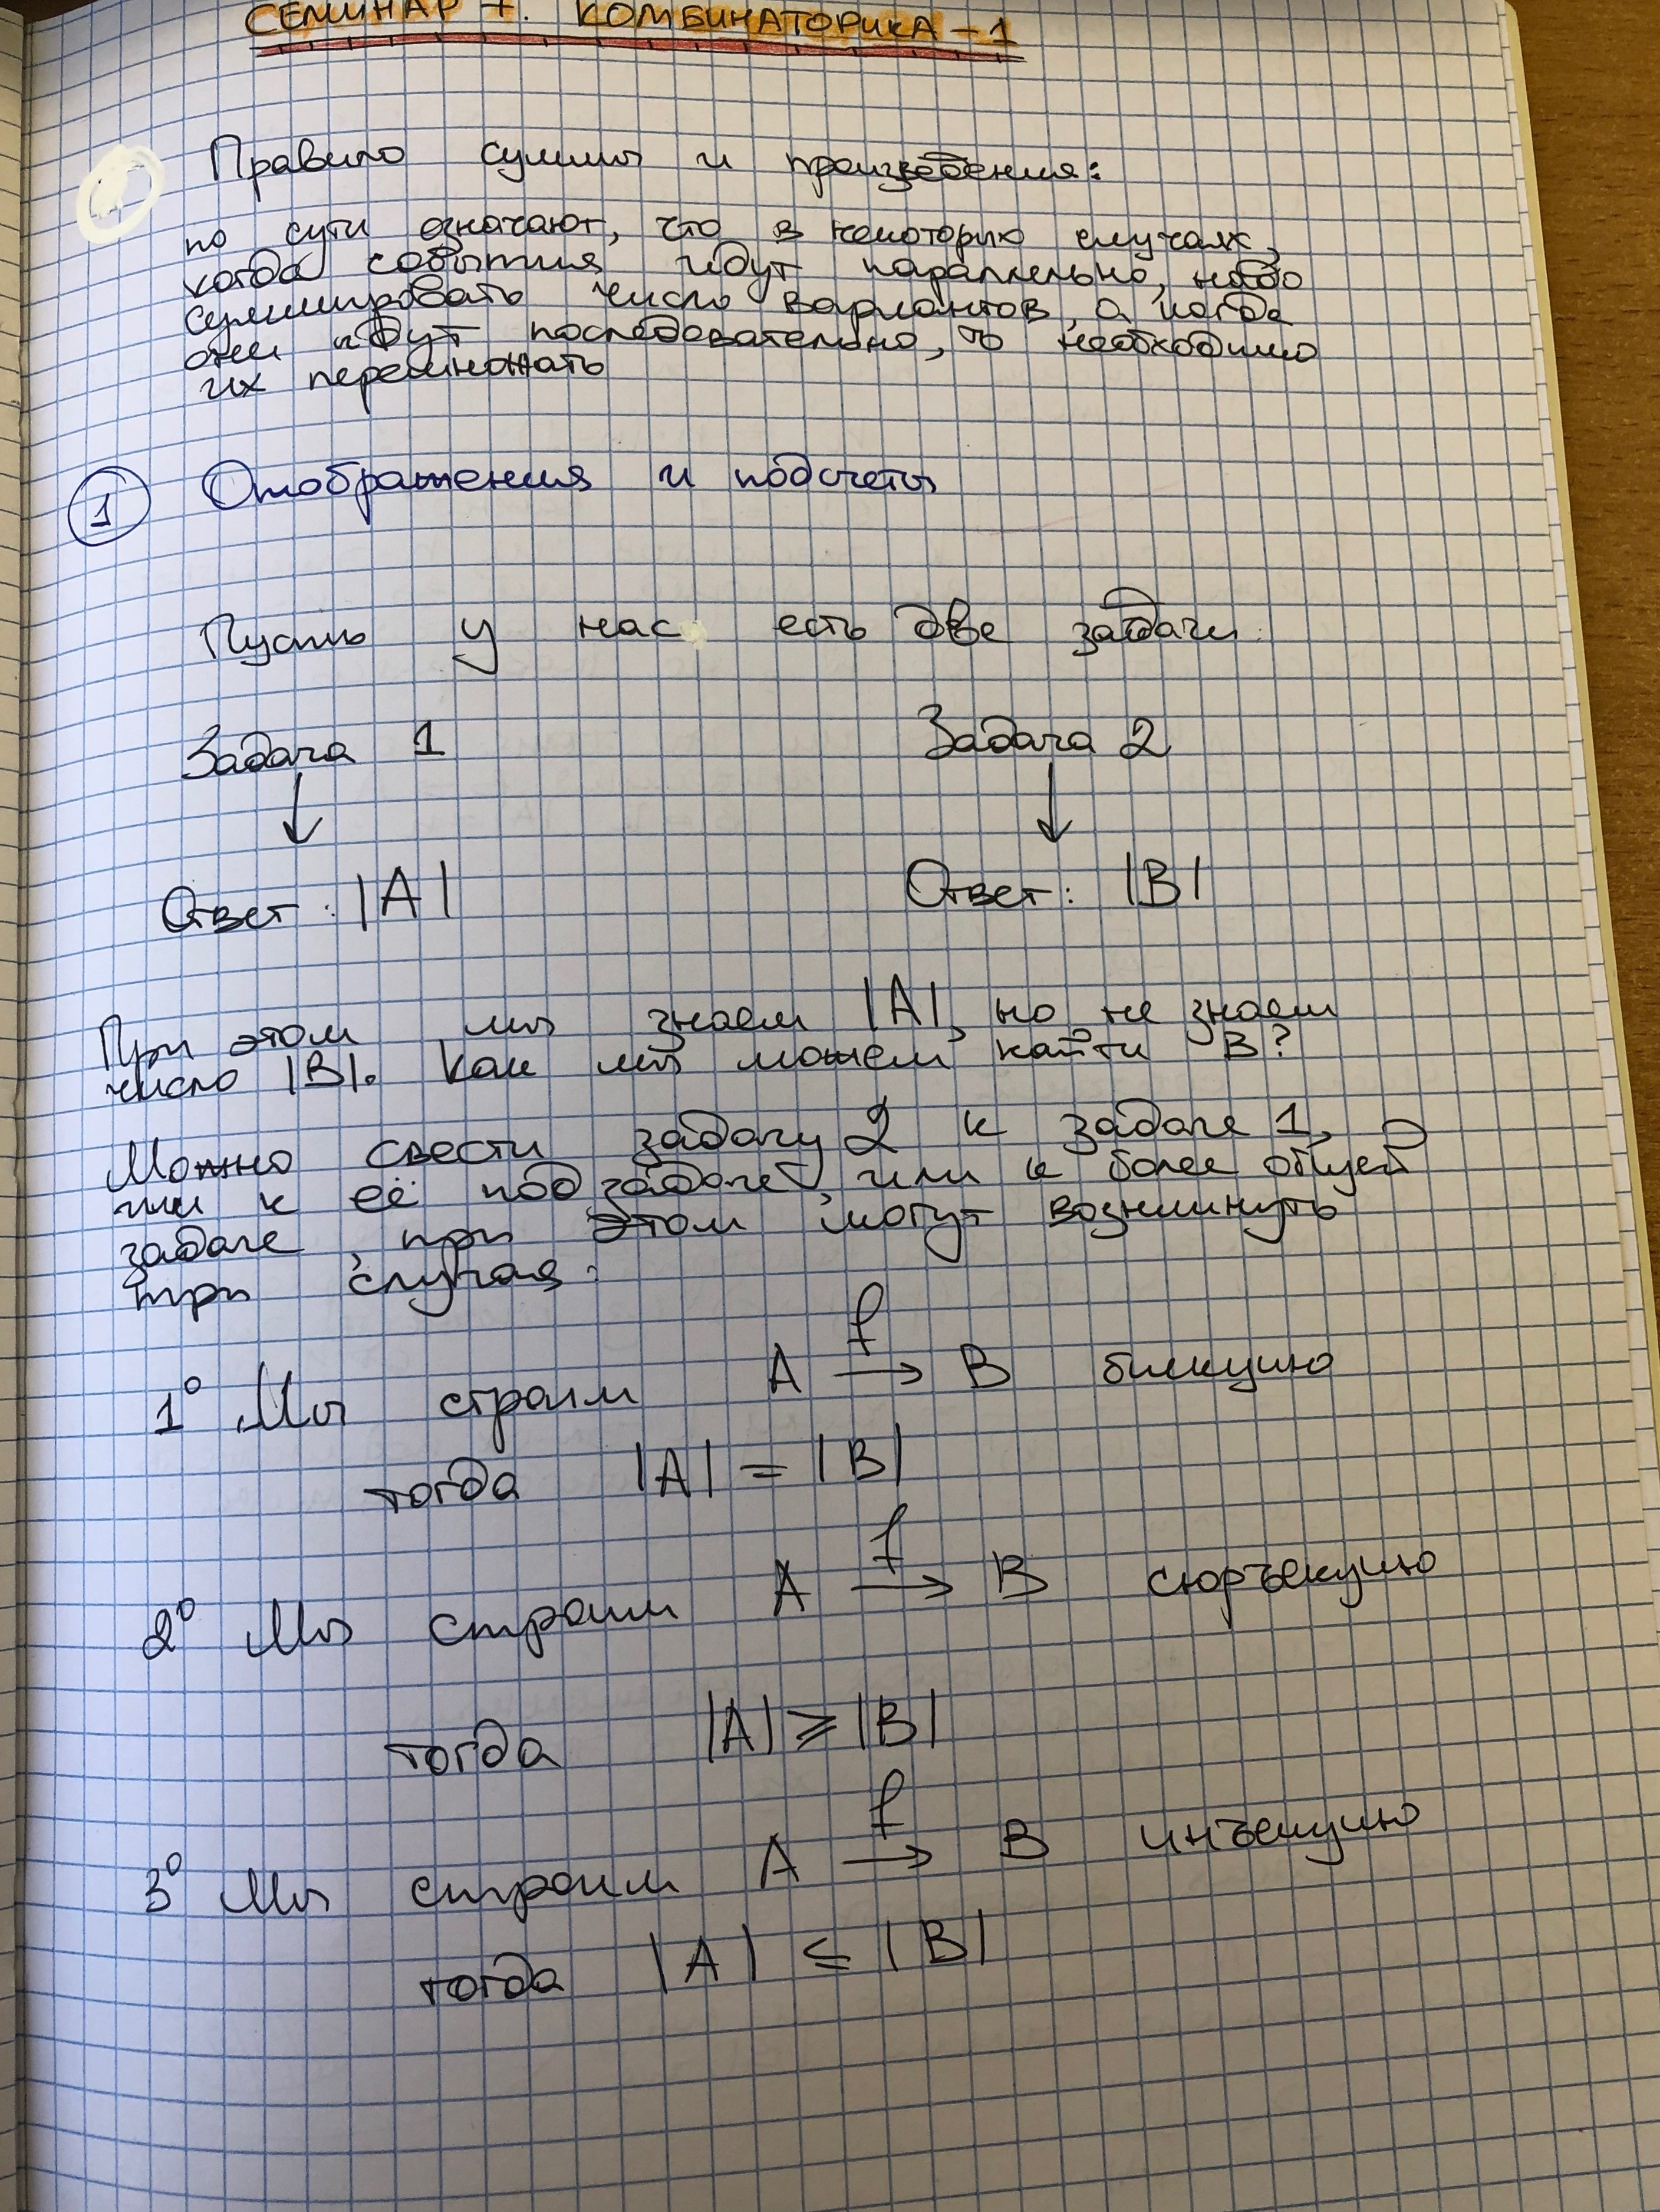 СЕМИНАР 7. КОМБИНАТОРИКА – 1
Правило суммы и произведения:
по сути означают, что в некоторых случаях,
когда события идут параллельно, надо
суммировать число вариантов, а когда
они идут последовательно, то необходимо
их перемножать
1 Отображения и подсчеты
Пусть у нас есть две задачи:
Задача 1 Задача 2
↓ ↓
Ответ: |A| Ответ: |B|
При этом мы знаем |A|, но не знаем
число |B|. Как мы можем найти B?
Можно свести задачу 2 к задаче 1,
или к её подзадаче, или к более общей
задаче, при этом могут возникнуть
три случая:
f
1° Мы строим A → B биекцию
тогда |A| = |B|
f
2° Мы строим A → B сюръекцию
тогда |A| ⩾ |B|
f
3° Мы строим A → B инъекцию
тогда |A| ≤ |B|